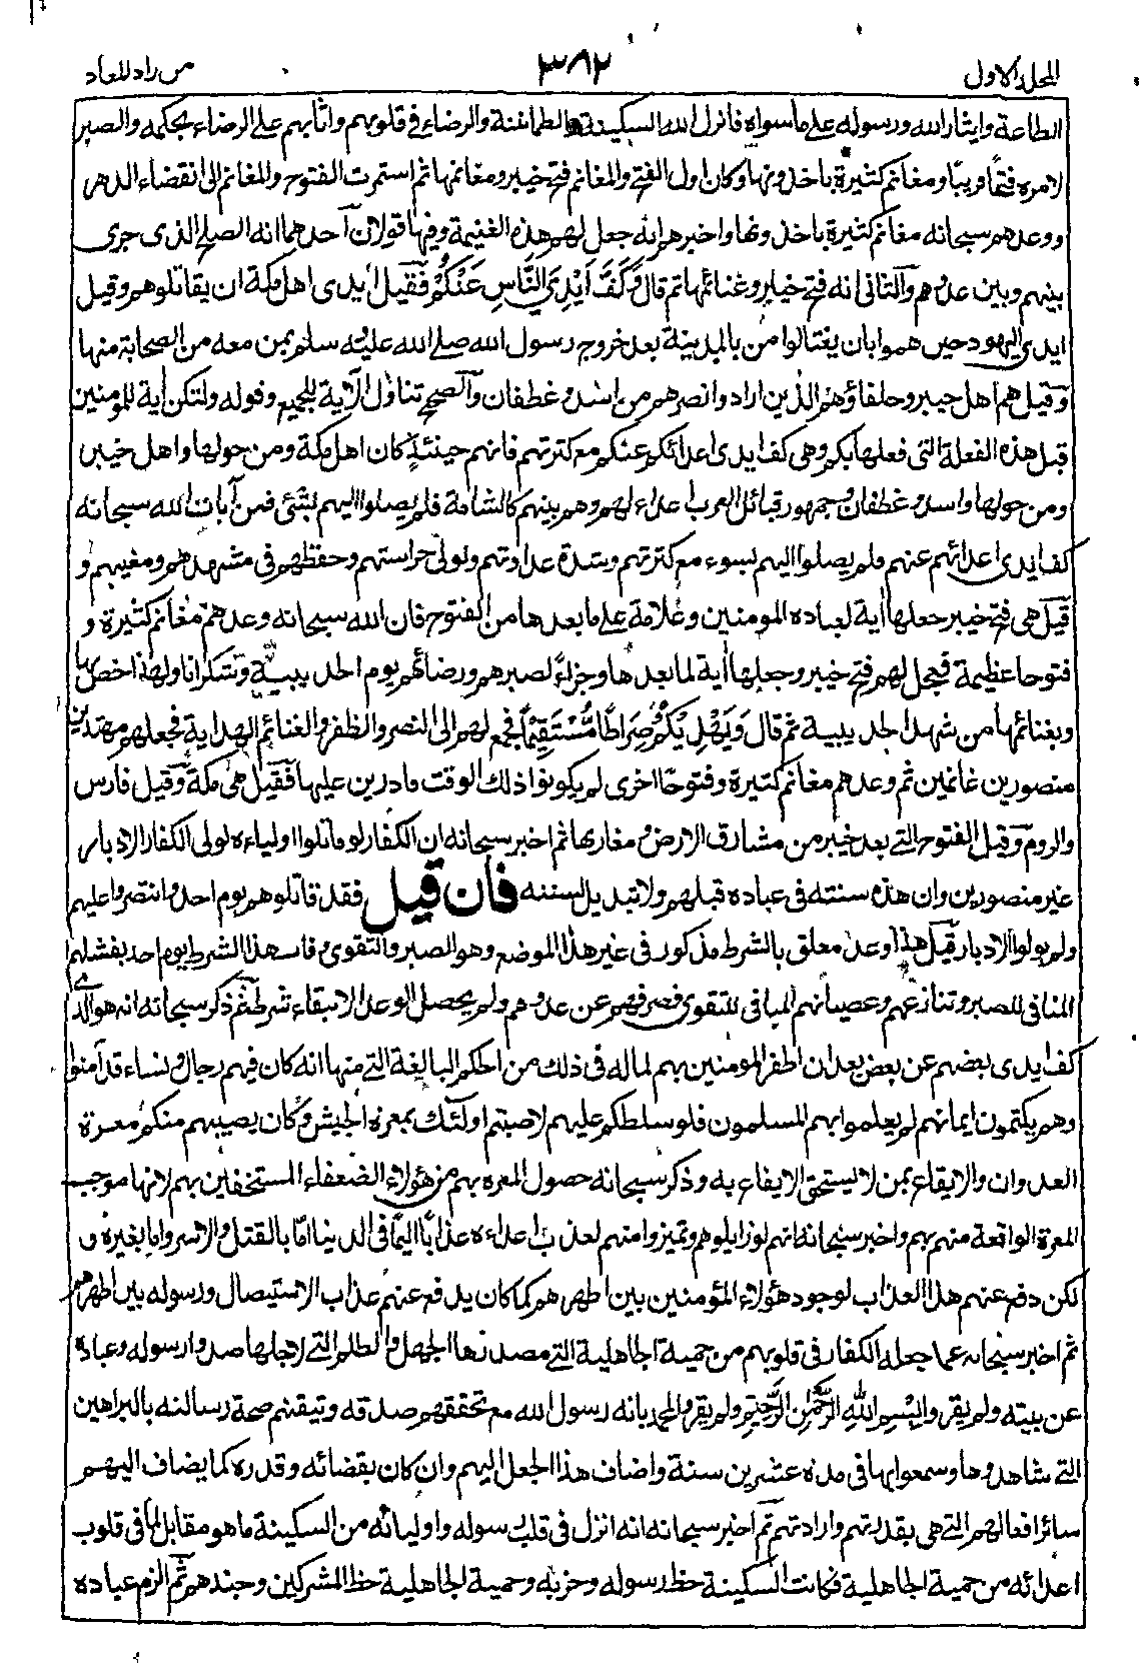 المجلد الاول
٣٨٢
من زاد المعاد
الطاعة وايثار الله ورسوله على ما سواه فانزل الله السكينة والطمانينة والرضاء في قلوبهم واثابهم على الرضاء بحكمه والصبر
لامره فتحا قريبا ومغانم كثيرة ياخذونها وكان اول الفتح والمغانم فتح خيبر ومغانمها ثم استمرت الفتوح والمغانم الى انقضاء الدهر
ووعدهم سبحانه مغانم كثيرة ياخذونها واخبرهم انه جعل لهم هذه الغنيمة وفيها قولان احدهما انه الصلح الذي جرى
بينهم وبين عدوهم والثاني انه فتح خيبر وغنائمها ثم قال وَكَفَّ اَيْدِيَ النَّاسِ عَنْكُمْ فقيل ايدي اهل مكة ان يقاتلوهم وقيل
ايدي اليهود حين هموا بان يغتالوا من بالمدينة بعد خروج رسول الله صلى الله عليه سلم بمن معه من الصحابة منها
وقيل هم اهل خيبر وحلفاؤهم الذين ارادوا نصرهم من اسد وغطفان والصحيح تناول الآية للجميع وقوله ولتكون أية للمومنين
قيل هذه الفعلة التي فعلها بكم وهي كف ايدي اعدائكم عنكم مع كثرتهم فانهم حينئذ كان اهل مكة ومن حولها واهل خيبر
ومن حولها واسد وغطفان وجمهور قبائل العرب اعداء لهم وهم بينهم كالشامة فلم يصلوا اليهم بشئ فمن آيات الله سبحانه
كف ايدي اعدائهم عنهم ولم يصلوا اليهم بسوء مع كثرتهم وشدة عداوتهم وتولى حراستهم وحفظهم في مشهدهم ومغيبهم و
قيل هي فتح خيبر جعلها أية لعباده المومنين وعلامة على ما بعدها من الفتوح فان الله سبحانه وعدهم مغانم كثيرة و
فتوحا عظيمة فعجل لهم فتح خيبر وجعلها أية لما بعدها وجزاء لصبرهم ورضائهم يوم الحديبية وشكرانا ولهذا خص بها
وبغنائمها من شهد الحديبية ثم قال وَيَهْدِيَكُمْ صِرَاطًا مُّسْتَقِيْمًا فجمع لهم الى النصر والظفر والغنائم الهداية فجعلهم مهتدين
منصورين غانمين ثم وعدهم مغانم كثيرة وفتوحا اخرى لم يكونوا ذلك الوقت قادرين عليها فقيل هي مكة وقيل فارس
والروم وقيل الفتوح التي بعد خيبر من مشارق الارض ومغاربها ثم اخبر سبحانه ان الكفار لو قاتلوا اولياءه لولى الكفار الادبار
غير منصورين وان هذه سنته في عباده قبلهم ولا تبديل لسنته فان قيل فقد قاتلوهم يوم احد وانتصروا عليهم
ولم يولوا الادبار قيل هذا وعد معلق بالشرط مذكور في غير هذا الموضع وهو الصبر والتقوى وفات هذا الشرط يوم احد بفشلهم
المنافي للصبر وتنازعهم وعصيانهم المنافي للتقوى فصرفهم عن عدوهم ولم يحصل الوعد لانتفاء شرطه ثم ذكر سبحانه انه هو الذي
كف ايدي بعضهم عن بعض بعد ان اظفر المومنين بهم لما له في ذلك من الحكم البالغة التي منها انه كان فيهم رجال ونساء قد آمنوا
وهم يكتمون ايمانهم لم يعلموا بهم المسلمون فلو سلطكم عليهم لاصبتم اولئك بمعرة الجيش وكان يصيبهم منكم معرة
العدوان والايقاع بمن لا يستحق الايقاع به وذكر سبحانه حصول المعرة بهم من هؤلاء الضعفاء المستخفين بهم لانها موجب
المعرة الواقعة منهم بهم واخبر سبحانه انهم لو زايلوهم وتميزوا منهم لعذب اعداءه عذابا اليما في الدنيا اما بالقتل والاسر واما بغيره و
لكن دفع عنهم هذا العذاب لوجود هؤلاء المؤمنين بين اظهرهم كما كان يدفع عنهم عذاب الاستيصال ورسوله بين اظهرهم
ثم اخبر سبحانه عما جعله الكفار في قلوبهم من حمية الجاهلية التي مصدرها الجهل والظلم التي لاجلها صدوا رسوله وعباده
عن بيته ولم يقروا بِسْمِ اللّٰهِ الرَّحْمٰنِ الرَّحِيْمِ ولم يقروا لمحمد بانه رسول الله مع تحققهم صدقه وتيقنهم صحة رسالته بالبراهين
التي شاهدوها وسمعوا بها في مدة عشرين سنة واضاف هذا الجعل اليهم وان كان بقضائه وقدره كما يضاف اليهم
سائر افعالهم التي هي بقدرتهم وارادتهم ثم اخبر سبحانه انه انزل في قلب رسوله واوليائه من السكينة ما هو مقابل لما في قلوب
اعدائه من حمية الجاهلية فكانت السكينة حظ رسوله وحزبه وحمية الجاهلية حظ المشركين وجندهم ثم الزم عباده